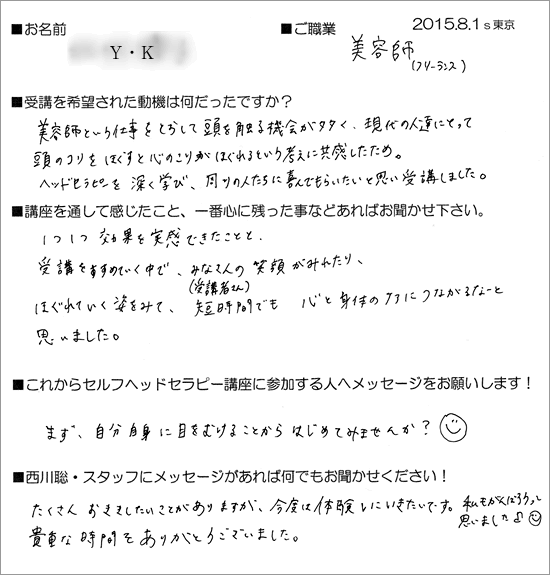 ■お名前
Y・K
■ご職業
2015.8.1 s東京
美容師
(フリーランス)
■受講を希望された動機は何だったですか？
美容師という仕事をとおして頭を触る機会が多く、現代の人達にとって
頭のコリをほぐすと心のこりがほぐれるという考えに共感したため。
ヘッドセラピーを深く学び、周りの人たちに喜んでもらいたいと思い受講しました。
■講座を通して感じたこと、一番心に残った事などあればお聞かせ下さい。
1つ1つ効果を実感できたことと、
受講をすすめていく中で、みなさんの笑顔がみれたり、
(受講者さん)
ほぐれていく姿をみて、短時間でも 心と身体のケアにつながるなーと
思いました。
■これからセルフヘッドセラピー講座に参加する人へメッセージをお願いします！
まず、自分自身に目をむけることからはじめてみませんか？
■西川聡・スタッフにメッセージがあれば何でもお聞かせください！
たくさんお話ししたいことがありますが、今度は体験しにいきたいです。
私もがんばろうって
思いました♫
貴重な時間をありがとうございました。